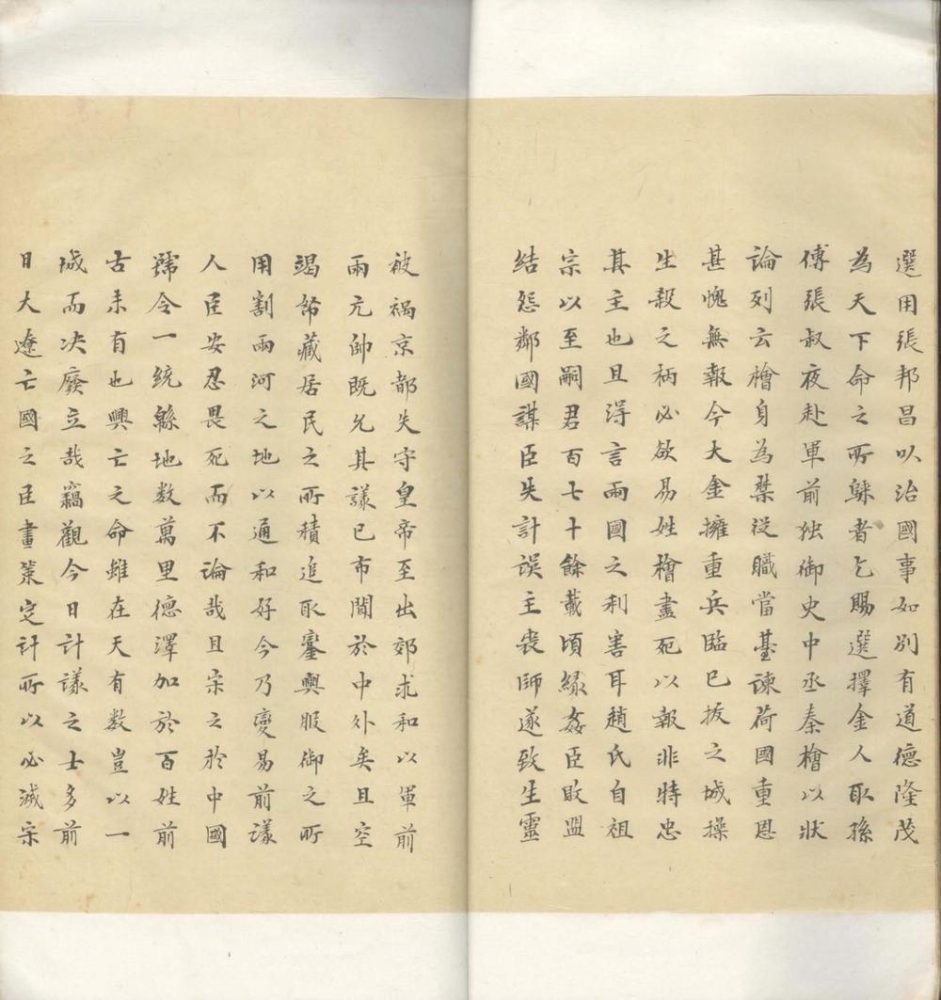 選用張邦昌以治國事如別有道德隆茂
為天下命之所歸者乞賜選擇金人取孫
傅張叔夜赴軍前独御史中丞秦檜以狀
論列云檜身為禁從職當臺諫荷國重恩
甚愧無報今大金擁重兵臨已拔之城操
生殺之柄必欲易姓檜盡死以報非特忠
其主也且淂言兩國之利害耳趙氏自祖
宗以至嗣君百七十餘載頃緣姦臣敗盟
結怨鄰國謀臣失計误主喪師遂致生靈
被禍京都失守皇帝至出郊求和以軍前
兩元帥既允其議已布聞於中外矣且空
竭帑藏居民之所積追取鑾輿服御之所
用割兩河之地以通和好今乃變易前議
人臣安忍畏死而不論哉且宋之於中國
號令一統綿地数萬里德澤加於百姓前
古未有也興亡之命雖在天有数豈以一
城而决廢立哉竊觀今日計議之士多前
日大遼亡國之臣畫策定計所以必滅宗